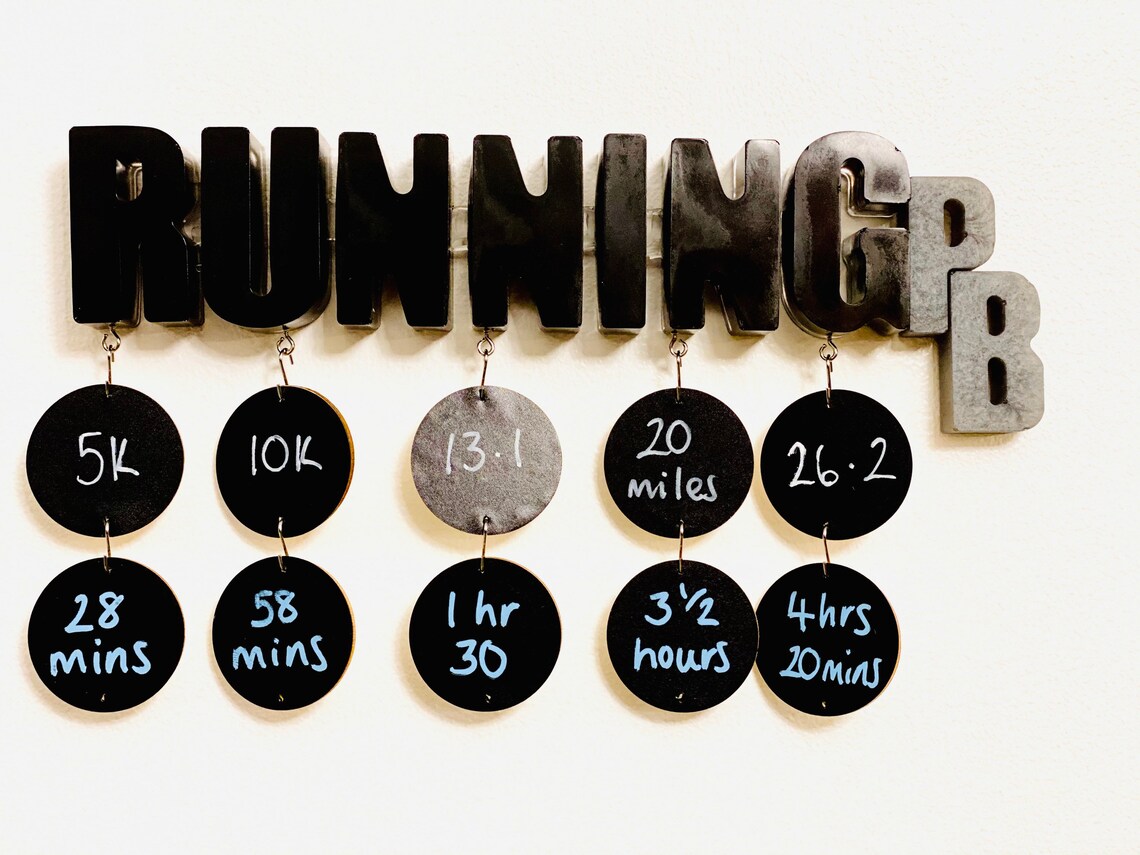 RUNNING PB
5K
10K
13.1
20
miles
26.2
28
mins
58
mins
1 hr
30
3 1/2
hours
4hrs
20mins